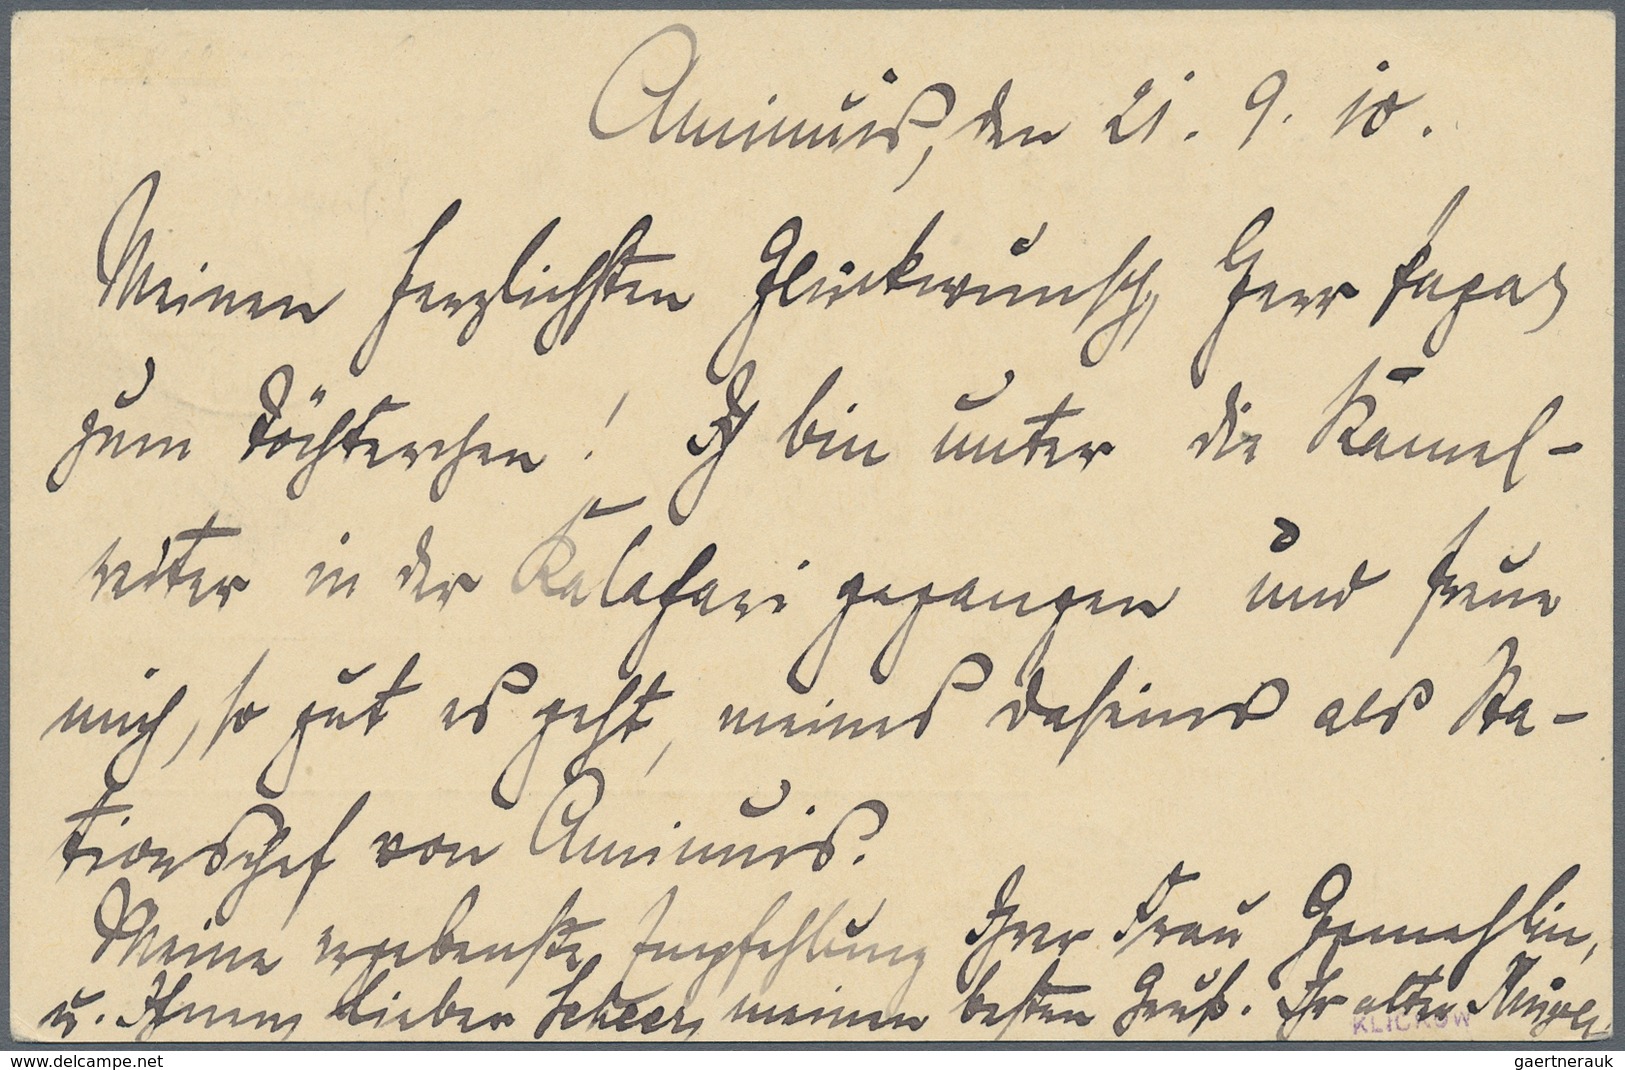 Aminuis, den 21. 9. 10.
Meinen herzlichsten Glückwunsch, Herr Papa,
zum Töchterchen! Ich bin unter die Kamel-
reiter in der Kalahari gegangen und freue
mich, so gut es geht, meines Daseins als Sta-
tionschef von Aminuis.
Meine ergebenste Empfehlung Ihrer Frau Gemahlin,
u. Ihnen, lieber Scheer, meinen besten Gruß. Ihr alter
KLICKOW
delcampe.net
gaertnerauk